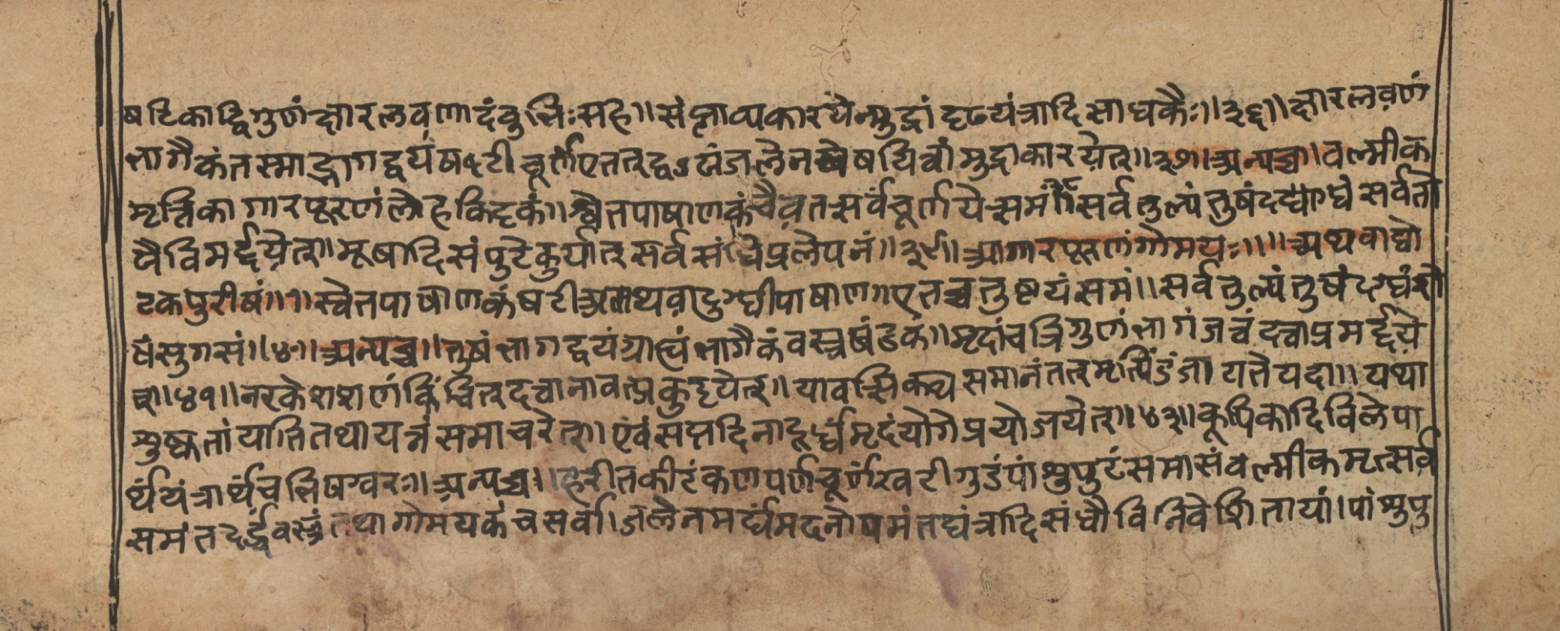 षटिकाद्विगुणं क्षारलवणादंबुभिः सह ॥ संप्लाव्य कारयेन्मुद्रां दृढयंत्रादिसाधकैः ॥ ३६ ॥ क्षारलवणं
भागैकं तस्माद्भागद्वयं षटी चूर्णं एतत् जलेन पेषयित्वा मुद्रा कारयेत् ॥ ३७ ॥ अन्यच्च । वल्मीक
मृत्तिकागारपूरणं लोहकिट्टकं ॥ श्वेतपाषाणकं चैव तत्सर्वं चूर्णयेत्समं ॥ सर्वतुल्यं तुषं सर्वतो
चै विमर्द्दयेत् ॥ मूषादिसंपुटे कुर्यात् सर्वसंधिप्रलेपनं ॥ गोमयः ॥ ॥ अथवा घो
टकपुरीषं ॥ १ ॥ स्वेतपाषाणकं षटी अथवा दुग्धीपाषाण । एतच्चतुष्टयं समं ॥ सर्वतुल्यं तुषं दग्धं शो
षं सुगसं ॥ अन्यच्च ॥ तुषं भागद्वयं ग्राह्यं भागैकं वस्त्रषंडकं ॥ मृदां च त्रिगुणं भागं जलं दत्वा प्रमर्द्दये
त् ॥ ४१ ॥ नरकेशशणं किंचित् दत्वा तावत्प्रकुट्टयेत् ॥ यावत्सिक्थसमानं तत् मृत्पिंडं जायते यदा ॥ यथा
शुष्कतां याति तथा यत्नं समाचरेत् ॥ एवं सप्तदिनादूर्ध्वं मृदं योगे प्रयोजयेत् ॥ ४३ ॥ कूपिकादिविलेपा
र्थं यंत्रार्थं च भिषग्वरः ॥ अन्यच्च ॥ हरीतकी टंकण पर्ण चूर्ण खटी गुडं पांशुपुटं समासं वल्मीकमृत्सर्व
समं तदर्द्धं वस्त्रं तथा गोमयकं च सर्वं । जलेन मर्द्यं मदनोपमं तद्यंत्रादिसंधौ विनिवेशितायां । पांशुपु